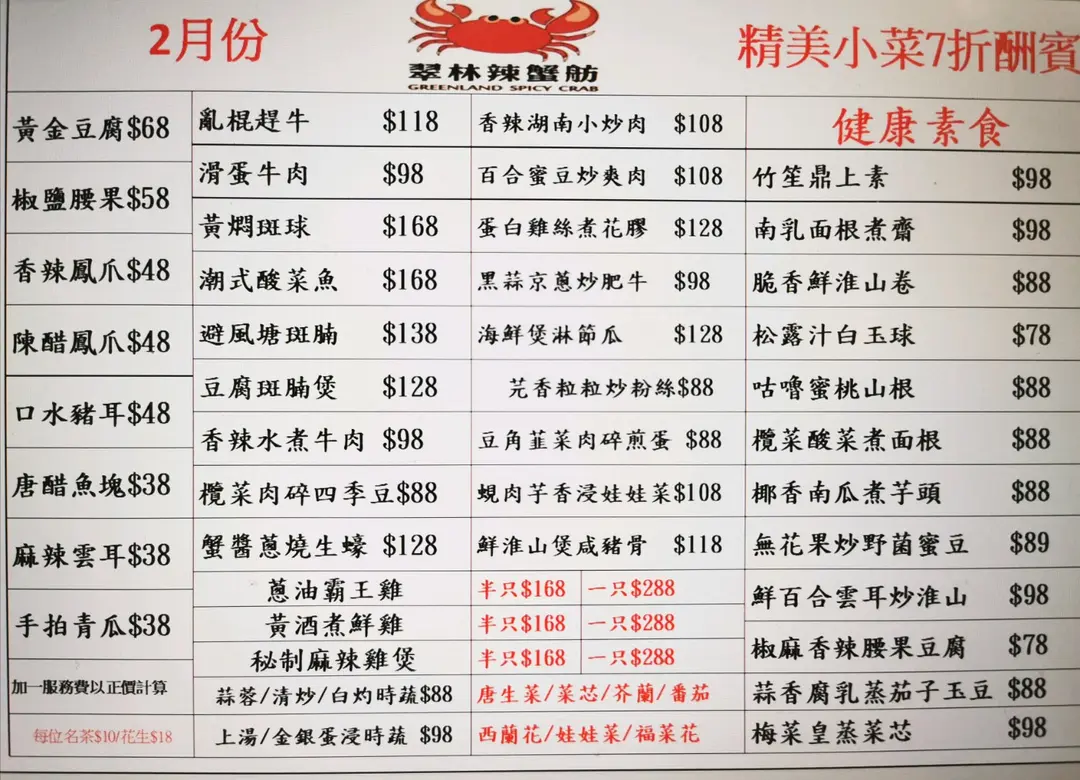 2月份
翠林辣蟹舫
GREENLAND SPICY CRAB
精美小菜7折酬賓
黃金豆腐$68
椒鹽腰果$58
香辣鳳爪$48
陳醋鳳爪$48
口水豬耳$48
唐醋魚塊$38
麻辣雲耳$38
手拍青瓜$38
加一服務費以正價計算
每位名茶$10/花生$18
亂棍趕牛 $118
滑蛋牛肉 $98
黃燜斑球 $168
潮式酸菜魚 $168
避風塘斑腩 $138
豆腐斑腩煲 $128
香辣水煮牛肉 $98
欖菜肉碎四季豆$88
蟹醬蔥燒生蠔 $128
蔥油霸王雞 半只$168 一只$288
黃酒煮鮮雞 半只$168 一只$288
秘制麻辣雞煲 半只$168 一只$288
蒜蓉/清炒/白灼時蔬$88 唐生菜/菜芯/芥蘭/番茄
上湯/金銀蛋浸時蔬 $98 西蘭花/娃娃菜/福菜花
香辣湖南小炒肉 $108
百合蜜豆炒爽肉 $108
蛋白雞絲煮花膠 $128
黑蒜京蔥炒肥牛 $98
海鮮煲淋節瓜 $128
芫香粒粒炒粉絲$88
豆角韮菜肉碎煎蛋 $88
蜆肉芋香浸娃娃菜$108
鮮淮山煲咸豬骨 $118
健康素食
竹笙鼎上素 $98
南乳面根煮齋 $98
脆香鮮淮山卷 $88
松露汁白玉球 $78
咕嚕蜜桃山根 $88
欖菜酸菜煮面根 $88
椰香南瓜煮芋頭 $88
無花果炒野菌蜜豆 $89
鮮百合雲耳炒淮山 $98
椒麻香辣腰果豆腐 $78
蒜香腐乳蒸茄子玉豆 $88
梅菜皇蒸菜芯 $98